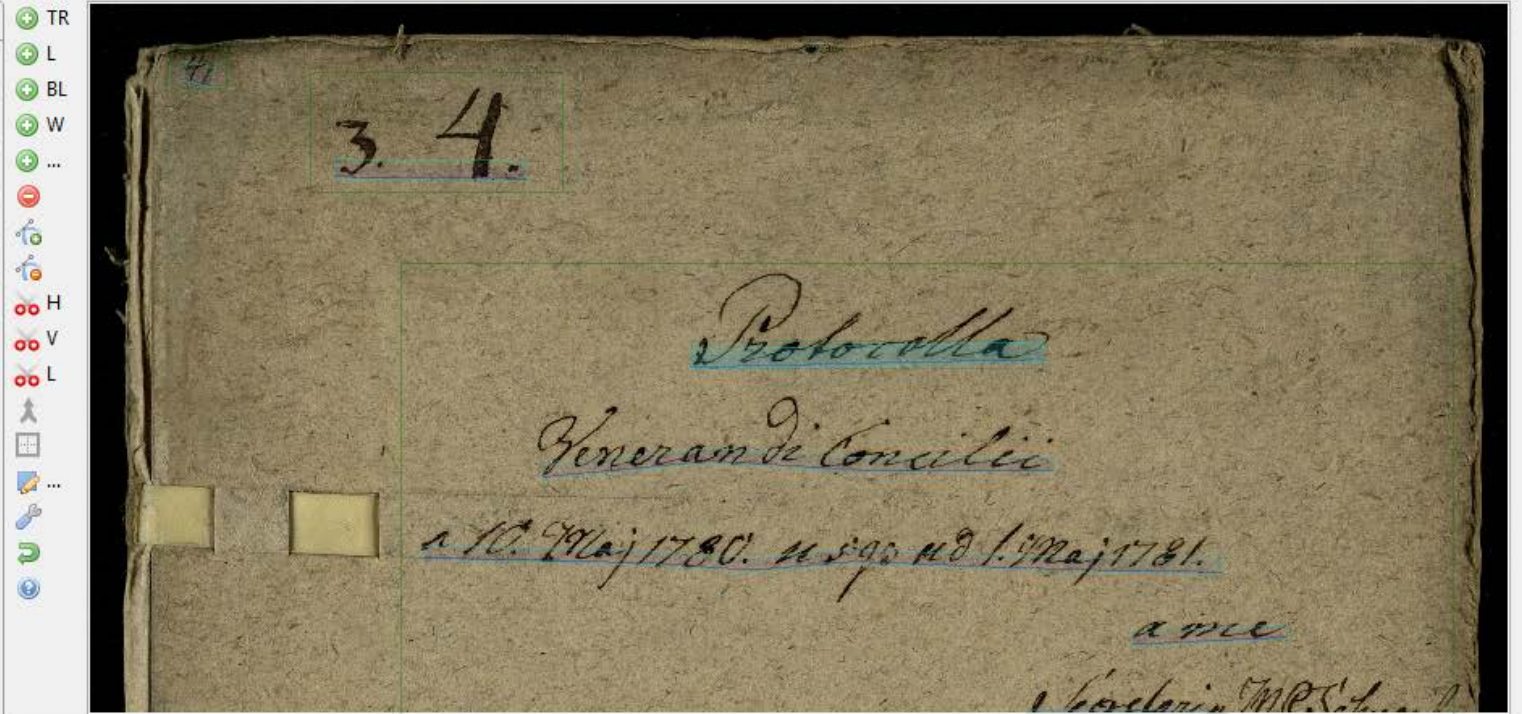 TR
L
BL
W
...
H
V
L
...
41
3. 4.
Protocolla
Venerandi Concilii
a 10. Maj 1780. usqs ad 1. Maj 1781.
a me
Secretario